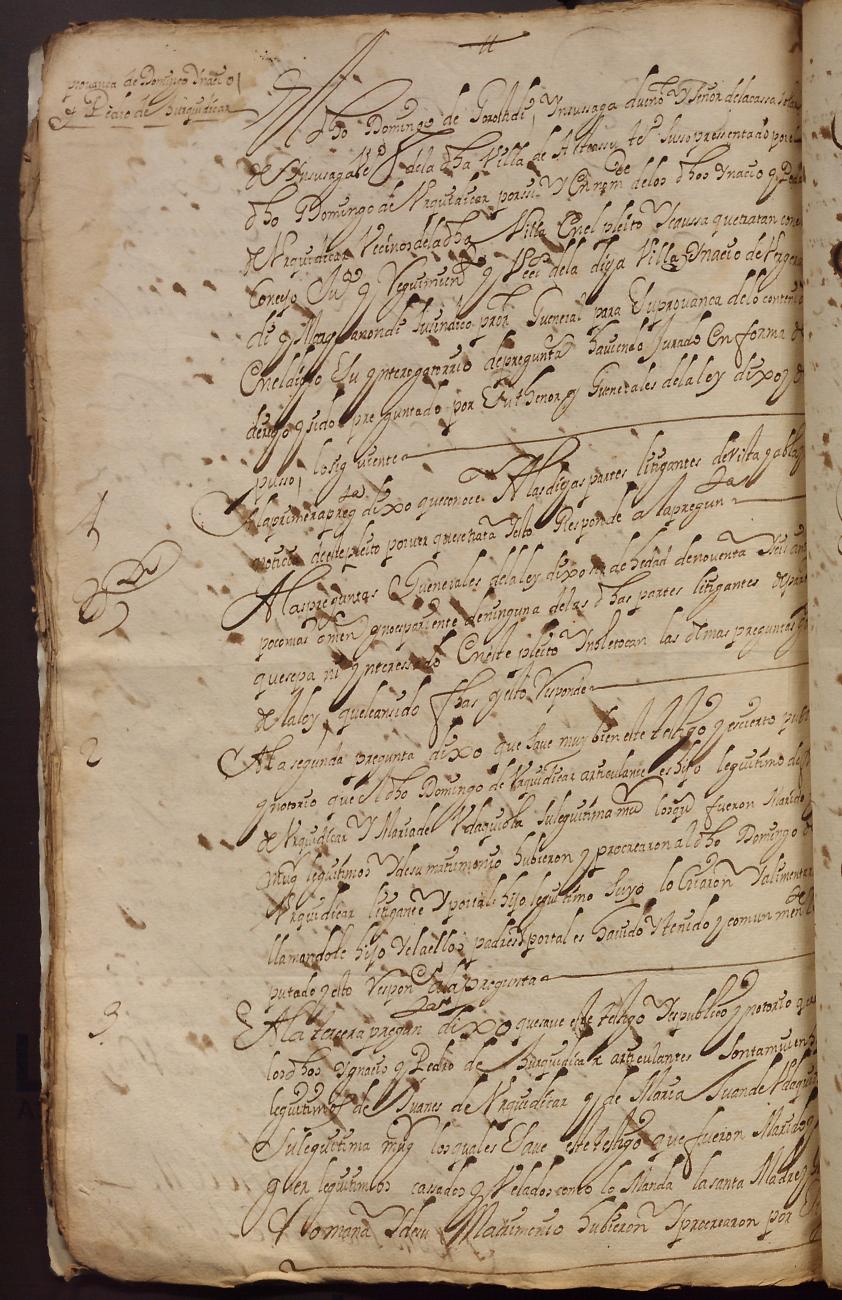 provanca de Domingo Ynacio
y Pedro de hurquidicar
dho Domingo de Ynsusaga dueño y señor dela cassa
de Ynsusaga dela dha Villa de test⁰ susso pressentado por
dho Domingo de Urquidicar por ssi y en nre de los dhos Ynacio y Pedro
de Urquidicar Vecinos de la dha Villa en el pleito y caussa que tratan con
Concejo Jusª y Regimiento y Vecºs dela dija Villa Ynacio de
di y sindico pror General para su provanca de lo contenido
en el dijo su ynterogatorio de preguntas haviendo jurado en forma de
derejo y sido preguntado por su thenor y Generales de la ley dixo y de
pusso lo siguiente
1 A la primera pregta dixo que conoce A las dijas partes litigantes de vista y abla y
noticia deste pleito por ver que se trata y esto Responde a la pregunta
A las preguntas Generales de la ley dixo ser de hedad de noventa y seis años
poco mas o men y no es pariente de ninguna de las dhas partes litigantes
que sepa ni ynteressado en este pleito y no le tocan las demas preguntas
de la ley que le an sido fhas y esto Responde
2 A la segunda pregunta dixo que save muy bien este testigo y es cierto publico
y notorio que el dho Domingo de Urquidicar articulante es hijo leguitimo de
de Urquidicar y Maria de Udaquiola su leguitima muº los que fueron Marido
Mug leguitimos y de su matrimonio hubieron y procrearon al dho Domingo de
Urquidicar litigante y por tal hijo leguitimo suyo lo criaron y alimentaron
llamandole hijo y el a ellos padres y por tal es havido y tenido y comunmente
putado y esto Responde a la pregunta
3 A la tercera pregunta dixo que save este testigo y es publico y notorio que
los dhos Ygnacio y Pedro de hurquidicar articulantes son tamvien
leguitimos de Juanes de Urquidicar y de Maria Juan de
su leguitima mug los quales save este testigo que fueron Marido y
guer leguitimos cassados y Velados como lo Manda la santa Madre
Romana y de su Matrimonio hubieron y procrearon por